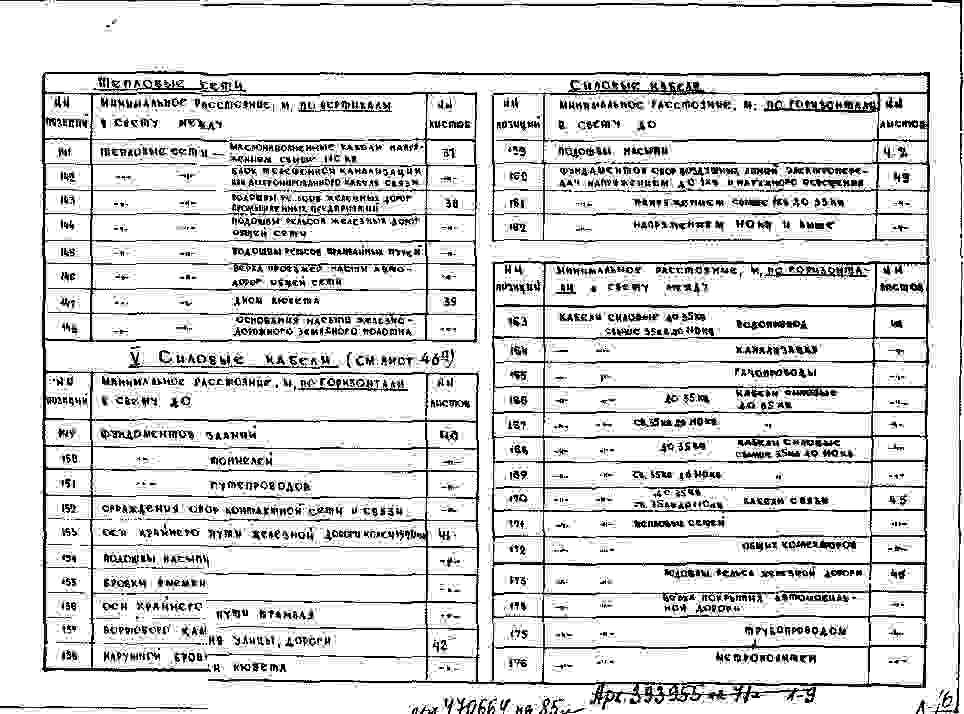 Тепловые сети
НН позиций
Минимальное расстояние, м, по вертикали в свету между
НН листов
141 Тепловые сети — маслонаполненные кабели напряжением свыше 110 кв 37
142 -"- -"- блок телефонной канализации или бронированного кабеля связи -"-
143 -"- -"- подошвы рельсов железных дорог промышленных предприятий 38
144 -"- -"- подошвы рельсов железных дорог общей сети -"-
145 -"- -"- подошвы рельсов трамвайных путей -"-
146 -"- -"- верха проезжей части автодорог общей сети -"-
147 -"- -"- дном кювета 39
148 -"- -"- основания насыпи железнодорожного земляного полотна -"-
V Силовые кабели (см. лист 46)
НН позиций
Минимальное расстояние, м, по горизонтали в свету до
НН листов
149 фундаментов зданий 40
150 -"- тоннелей -"-
151 -"- путепроводов -"-
152 ограждения опор контактной сети и связи -"-
153 оси крайнего пути железной дороги колеи 1520мм 41
154 подошвы насыпи -"-
155 бровки выемки -"-
156 оси крайнего пути трамвая -"-
157 бортового кам улицы, дороги 42
158 наружней бров кювета -"-
Силовые кабели
НН позиций
Минимальное расстояние, м, по горизонтали в свету до
НН листов
159 подошвы насыпи 42
160 фундаментов опор воздушных линий электропередач напряжением до 1кв и наружного освещения 43
161 -"- напряжением свыше 1кв до 35кв -"-
162 -"- напряжением 110кв и выше -"-
НН позиций
Минимальное расстояние, м, по горизонтали в свету между
НН листов
163 Кабели силовые до 35кв свыше 35кв до 110кв водопровод 44
164 -"- -"- канализация -"-
165 -"- -"- газопроводы -"-
166 -"- -"- до 35кв кабели силовые до 35кв -"-
167 -"- -"- св. 35кв до 110кв -"- -"-
168 -"- -"- до 35кв кабели силовые свыше 35кв до 110кв -"-
169 -"- -"- св. 35кв до 110кв -"- -"-
170 -"- -"- до 35кв св. 35кв до 110кв кабели связи 45
171 -"- -"- тепловые сетей -"-
172 -"- -"- общих коллекторов -"-
173 -"- -"- подошвы рельса железной дороги 46
174 -"- -"- верха покрытия автомобильной дороги -"-
175 -"- -"- трубопроводом -"-
176 -"- -"- -"-
470664 на 85
Арх. 393955 на 71л л-9